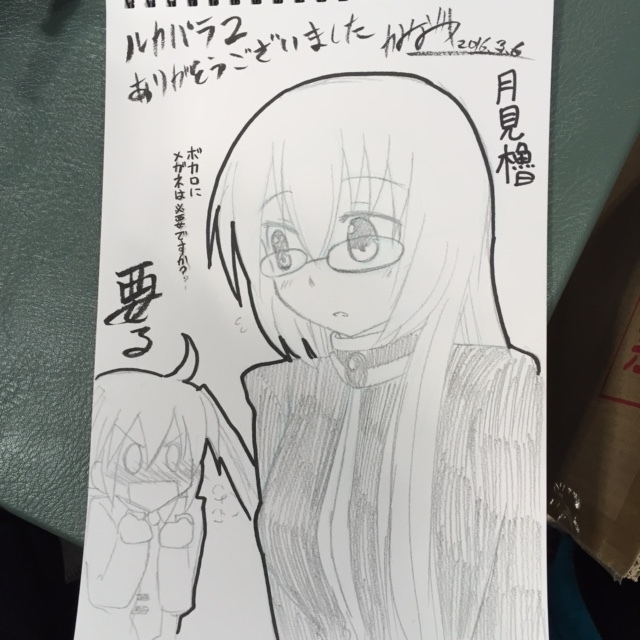 ルカパラ2
ありがとうございました
2016.3.6
月見櫓
ボカロに
メガネは必要ですか?
要る